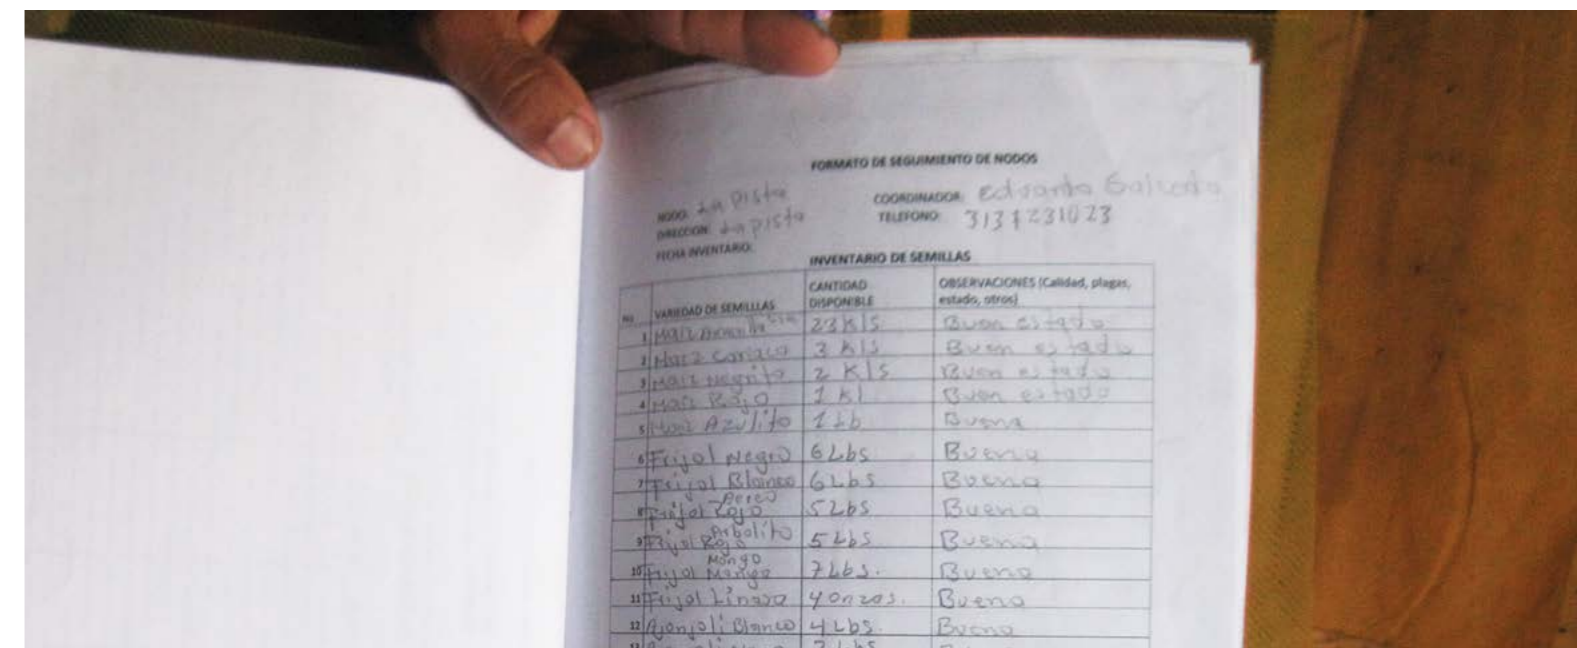 FORMATO DE SEGUIMIENTO DE NODOS
NODO: La Pista COORDINADOR: Eduardo Salcedo
DIRECCION: La Pista TELEFONO:
FECHA INVENTARIO:
INVENTARIO DE SEMILLAS
No VARIEDAD DE SEMILLLAS CANTIDAD DISPONIBLE OBSERVACIONES (Calidad, plagas, estado, otros)
1 Maiz 23 Kls Buen estado
2 Maiz Cariaco 3 Kls Buen estado
3 Maiz Negrito 2 Kls Buen estado
4 Maiz Rojo 1 Kl Buen estado
5 Maiz Azulito 1 Lb Buena
6 Frijol Negro 6 Lbs Buena
7 Frijol Blanco 6 Lbs Buena
8 Frijol Rojo 5 Lbs Buena
9 Frijol Rojo Arbolito 5 Lbs Buena
10 Frijol Mongo 7 Lbs. Buena
11 Frijol Linaza 4 onzas. Buena
12 Ajonjoli Blanco 4 Lbs. Buena
13